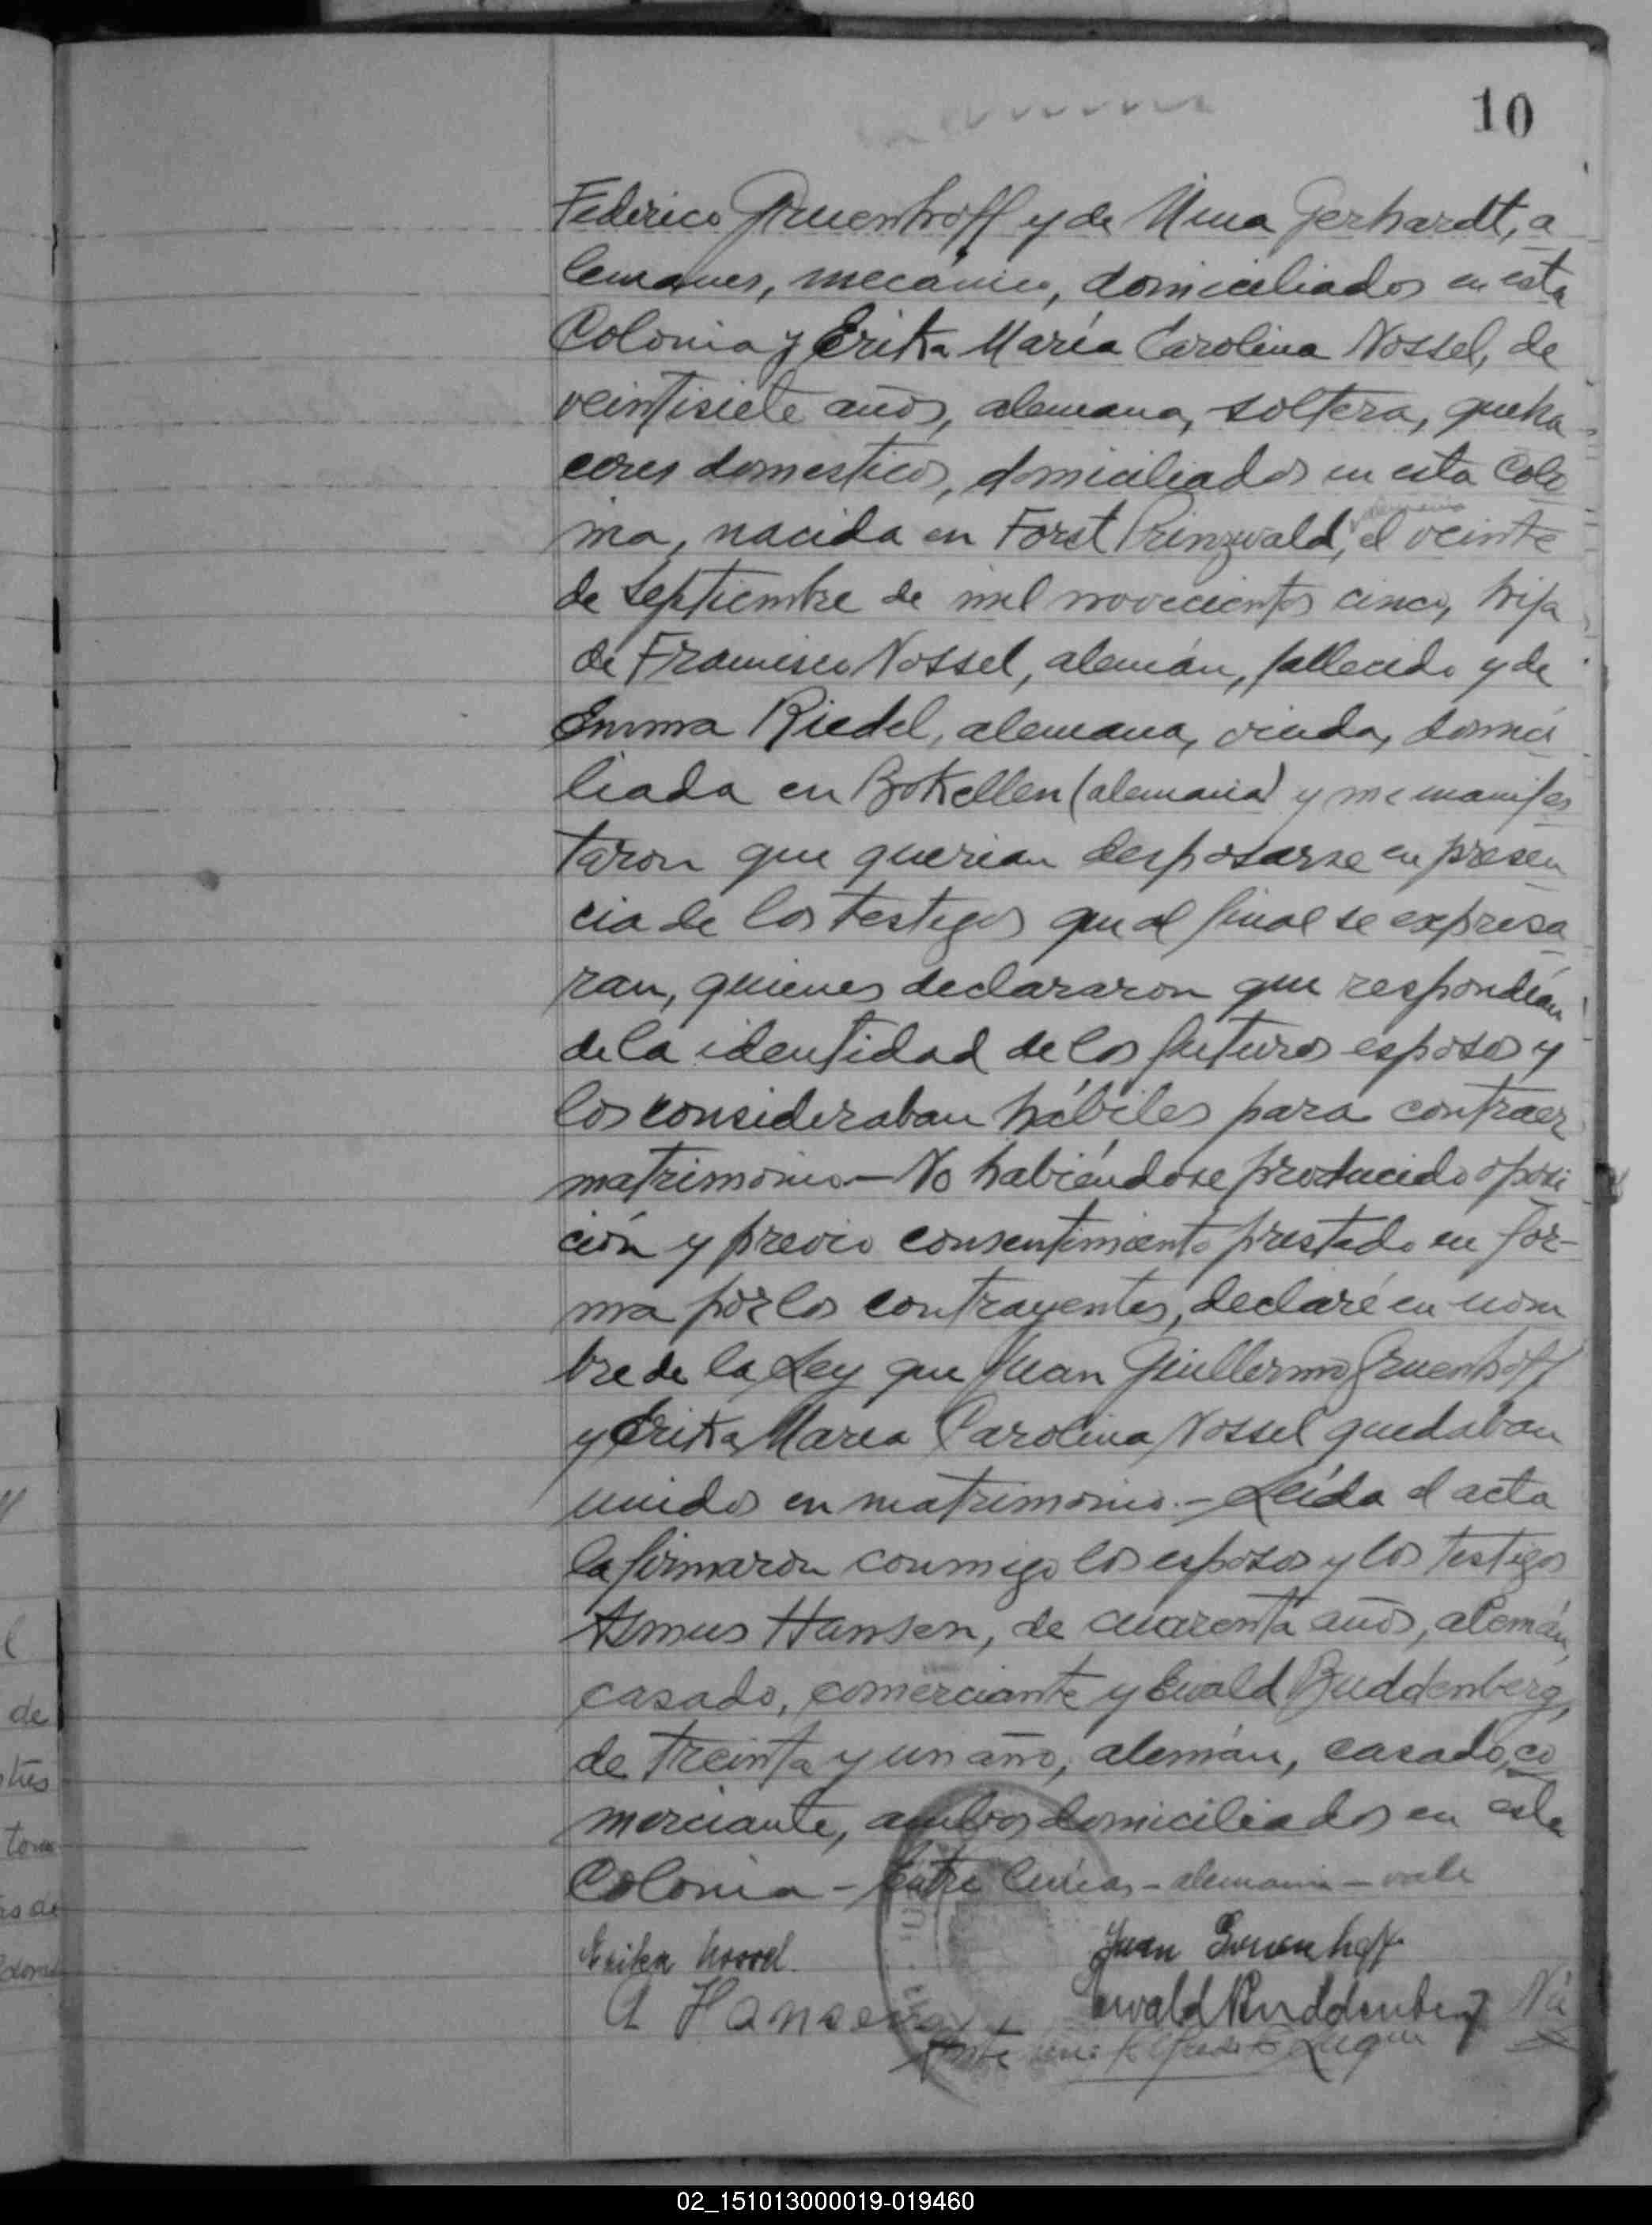 10
Federico Gruenhoff y de Mina Gerhardt, a
lemanes, mecánico, domiciliados en esta
Colonia y Erika María Carolina Nossel, de
veintisiete años, alemana, soltera, queha
ceres domesticos, domiciliados en esta Colo
nia, nacida en Forst Prinzwald, alemania el veinte
de Septiembre de mil novecientos cinco, hija
de Francisco Nossel, alemán, fallecido y de
Emma Riedel, alemana, viuda, domici
liada en Bokellen (alemania) y me manifes
taron que querian desposarse en presen
cia de los testigos que al final se expresa
ran, quienes declararon que respondían
de la identidad de los futuros esposos y
los consideraban hábiles para contraer
matrimonio - No habiéndose producido oposi
ción y previo consentimiento prestado en for-
ma por los contrayentes, declaré en nom
bre de la Ley que Juan Guillermo Gruenhoff
y Erika Maria Carolina Nossel quedaban
unidos en matrimonio. - Leída el acta
la firmaron conmigo los esposos y los testigos
Asmus Hansen, de cuarenta años, alemán,
casado, comerciante y Ewald Buddenberg,
de treinta y un año, alemán, casado, co
merciante, ambos domiciliados en esta
Colonia - Entre lineas - alemania - vale
Erika Nossel. Juan Gruenhoff
A Hansen Ewald Buddenberg
Ante mi:
de
tres
02_151013000019-019460